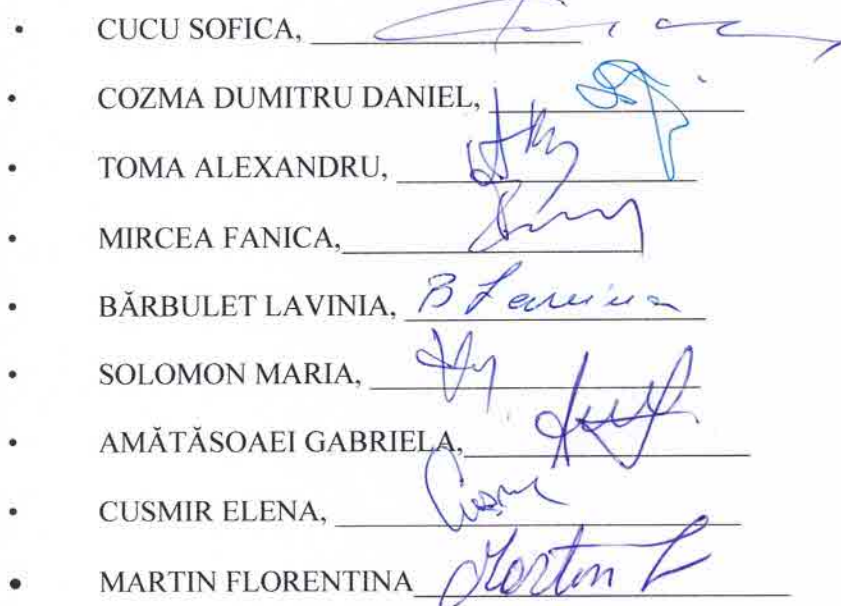 • CUCU SOFICA,
• COZMA DUMITRU DANIEL,
• TOMA ALEXANDRU,
• MIRCEA FANICA,
• BĂRBULET LAVINIA, B Lavinia
• SOLOMON MARIA,
• AMĂTĂSOAEI GABRIELA,
• CUSMIR ELENA,
• MARTIN FLORENTINA Martin F